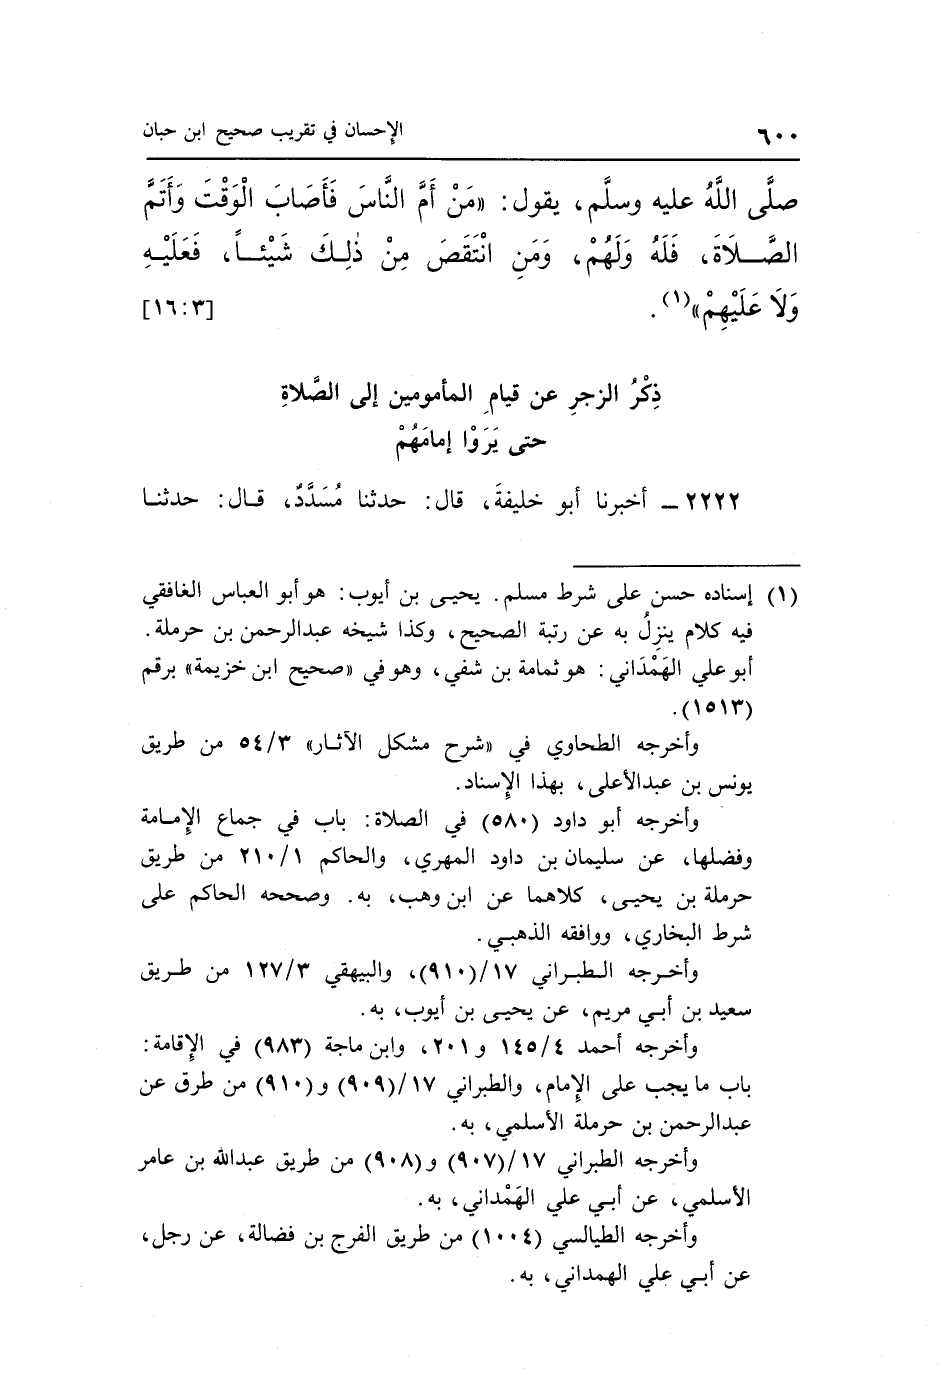 ٦٠٠ الإحسان في تقريب صحيح ابن حبان
صلَّى اللَّهُ عليه وسلَّم، يقول: «مَنْ أَمَّ النَّاسَ فَأَصَابَ الْوَقْتَ وَأَتَمَّ
الصَّلَاةَ، فَلَهُ وَلَهُمْ، وَمَنِ انْتَقَصَ مِنْ ذٰلِكَ شَيْئاً، فَعَلَيْهِ
وَلَا عَلَيْهِمْ»(١). [١٦:٣]
ذِكْرُ الزجرِ عن قيامِ المأمومين إلى الصَّلاةِ
حتى يَرَوْا إمامَهُمْ
٢٢٢٢ ـ أخبرنا أبو خليفةَ، قال: حدثنا مُسَدَّدٌ، قال: حدثنا
(١) إسناده حسن على شرط مسلم. يحيى بن أيوب: هو أبو العباس الغافقي
فيه كلام ينزِلُ به عن رتبة الصحيح، وكذا شيخه عبدالرحمن بن حرملة.
أبو علي الهَمْدَاني: هو ثمامة بن شفي، وهو في «صحيح ابن خزيمة» برقم
(١٥١٣).
وأخرجه الطحاوي في «شرح مشكل الآثار» ٥٤/٣ من طريق
يونس بن عبدالأعلى، بهذا الإسناد.
وأخرجه أبو داود (٥٨٠) في الصلاة: باب في جماع الإمامة
وفضلها، عن سليمان بن داود المهري، والحاكم ٢١٠/١ من طريق
حرملة بن يحيى، كلاهما عن ابن وهب، به. وصححه الحاكم على
شرط البخاري، ووافقه الذهبي.
وأخرجه الطبراني ١٧/(٩١٠)، والبيهقي ١٢٧/٣ من طريق
سعيد بن أبي مريم، عن يحيى بن أيوب، به.
وأخرجه أحمد ١٤٥/٤ و٢٠١، وابن ماجة (٩٨٣) في الإقامة:
باب ما يجب على الإمام، والطبراني ١٧/(٩٠٩) و(٩١٠) من طرق عن
عبدالرحمن بن حرملة الأسلمي، به.
وأخرجه الطبراني ١٧/(٩٠٧) و(٩٠٨) من طريق عبدالله بن عامر
الأسلمي، عن أبي علي الهَمْداني، به.
وأخرجه الطيالسي (١٠٠٤) من طريق الفرج بن فضالة، عن رجل،
عن أبي علي الهمداني، به.